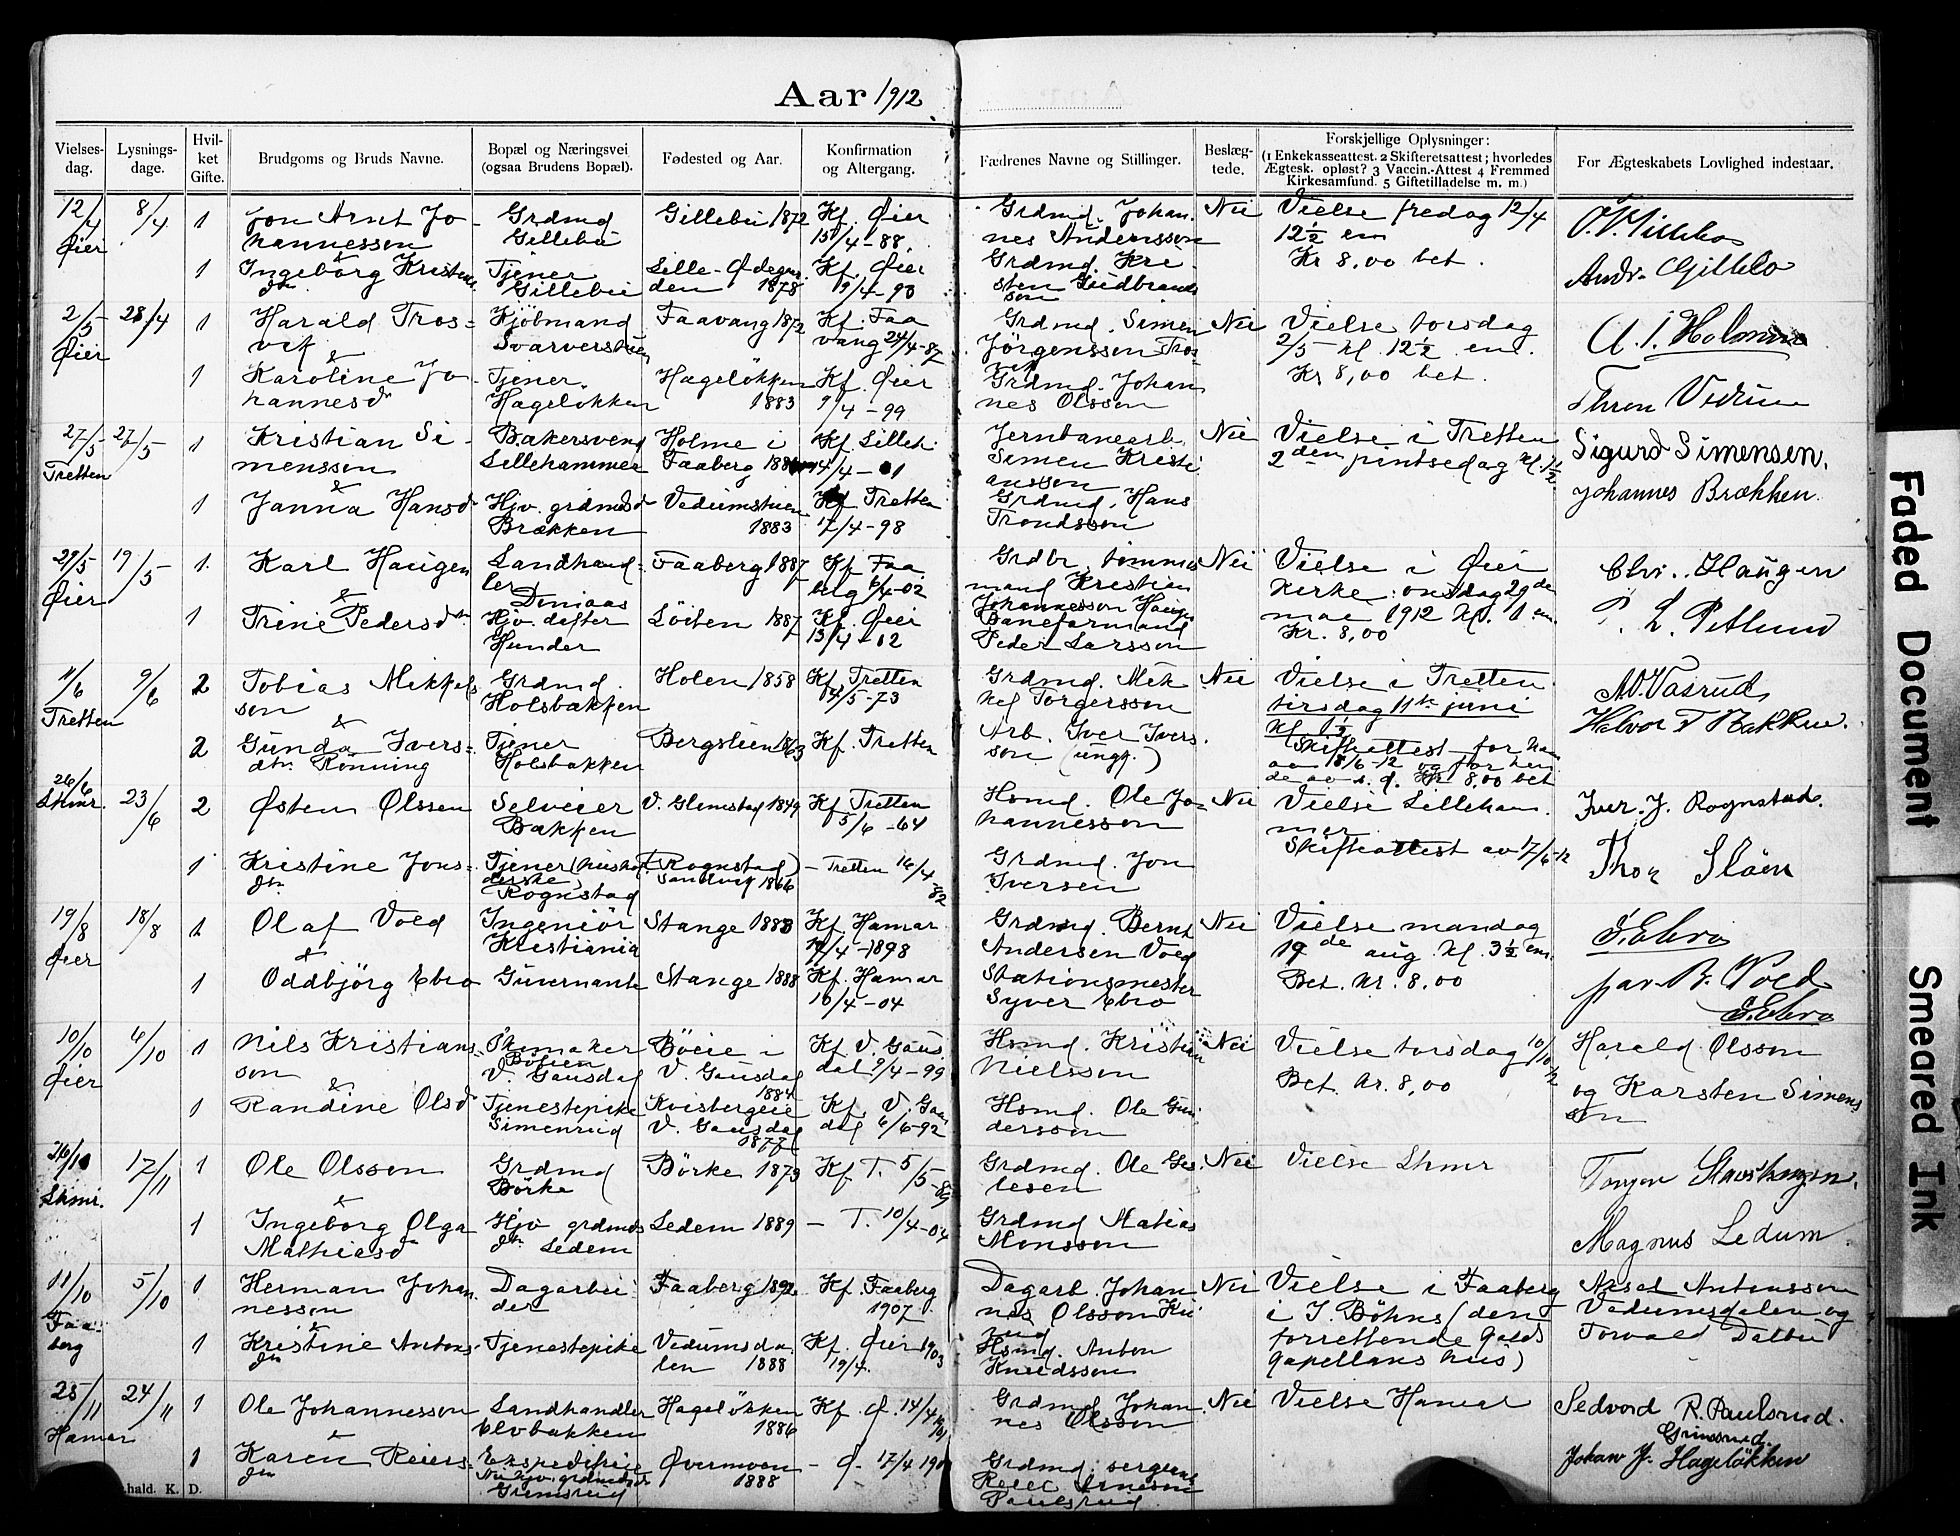 Aar 1912
Vielses-dag. Lysnings-dage. Hvil-ket Gifte. Brudgoms og Bruds Navne. Bopæl og Næringsvei (ogsaa Brudens Bopæl). Fødested og Aar. Konfirmation og Altergang. Fædrenes Navne og Stillinger. Beslæg-tede. Forskjellige Oplysninger: (1 Enkekasseattest. 2 Skifteretsattest; hvorledes Ægtesk. opløst? 3 Vaccin.-Attest 4 Fremmed Kirkesamfund. 5 Giftetilladelse m. m.) For Ægteskabets Lovlighed indestaar.
12/4 Øier 8/4 1 Jon Arnt Jo-hannesson Grdmd Gillebu Gillebu 1872 Kf. Øier 15/4-88. Grdmd. Johan-nes Anderssson Nei Vielse fredag 12/4 12½ em Kr 8,00 bet.
&
1 Ingebörg Kristens dtr Tjener Gillebu Lille-Ødegaarden 1878 Kf. Øier 9/4-93 Grdmd. Kri-sten Gudbrandsson Andr. Gillebo
2/5 Øier 28/4 1 Harald Tros-vik Kjöbmand Svarverstuen Faavang 1872 Kf. Faa vang 24/4-87 Grdmd. Simen Jörgenssen Tros-vik Nei Vielse torsdag 2/5 kl. 12½ em. Kr 8,00 bet. A. S. Holmen
&
1 Karoline Jo-hannesd Tjener. Hageløkken Hageløkken 1883 Kf. Øier 9/4-99 Grdmd. Johan nes Olsson Thron Vedum
27/5 Tretten 27/5 1 Kristian Si-mensson Bakersvend Lillehammer Holme i Faaberg Kf. Lilleh. 14/4-01 Jernbanearb. Simen Kristi anssen Nei Vielse i Tretten 2den pintsedag kl. 1½ Sigurd Simensen.
&
1 Janna Hansd Hjv. grdmds d Brækken Vedumstuen 1883 Kf Tretten 17/4-98 Grdmd. Hans Trondsson Johannes Brækken.
29/5 Øier 19/5 1. Karl Haugen Landhand-ler Faaberg 1887 Kf Faa berg 6/4-02 Grdbr. tömmermand Kristian Johannesson Haugen Nei Vielse i Øier Kirke: onsdag 29de mai 1912 Kl. 1 em. Kr. 8,00 Chr. Haugen
&
1 Trine Pedersdtr Hjv. datter Hunder Löiten 1887 Kf. Øier 13/4-02 Baneformand Peder Larsson P. L. Petlund
11/6 Tretten 9/6 2 Tobias Mikkels son Grdmd. Holsbakken Holen 1858 Kf. Tretten 14/5-73 Grdmd. Mik kel Torgersson Nei Vielse i Tretten tirsdag 11te juni kl ½
&
2 Gunda Ivers-dtr. Rönning Tjener Holsbakken Bergslien 1863 Kf. Tretten Arb. Iver Ivers-son (ungk.) Skifteattest for ham av 18/6-12 og for hen de av s. d. Kr 8,00 bet Halvor T Bakken.
26/6 Lhmr. 23/6 2 Østen Olssen Selveier Bakken V. Glomstad 1849 Kf Tretten 5/6-64 Hsmd. Ole Jo-hannesson Nei Vielse Lilleham mer Skifteattest av 17/6-12 Iver. J. Rognstad.
1 Kristine Jons-dtr Tjener (hushol derske) Rognstad (Rognstad) Sandvik 1866 - Tretten 16/4-82 Grdmd. Jon Iversen Thor Slåen
19/8 Øier 18/8 1 Olaf Vold Ingeniör Kristiania Stange 1883 Kf. Hamar 17/4-1898 Grdmd. Bernt Andersen Vold Nei Vielse mandag 19de aug. kl. 3½ em. Bet. kr. 8,00 S. Ebro
&
1 Oddbjörg Ebro Guvernante Stange 1888 Kf. Hamar 10/4-04 Stationsmester Syver Ebro B. Vold S. Ebro
10/10 Øier 6/10 1 Nils Kristians-son Skomaker Böeien V. Gausdal Böeie i V. Gausdal 1884 Kf V. Gaus dal 9/4-99 Hsmd. Kristian Nielsson Nei Vielse torsdag 10/10 12 Bet. kr. 8,00 Harald Olsson
&
1 Randine Olsd Tjenestepike Simenrud Kvisbergeie V. Gausdal 1877 Kf. V. Gausdal 6/6-92 Hsmd. Ole Gun derssen og Karsten Simens sen
Lhmr. 17/11 1 Ole Olsson Grdmd Börke Börke 1873 Kf. T. 5/5-89 Grdmd. Ole Gis lesen Nei Vielse Lhmr
&
1 Ingeborg Olga Mathiasd Hjv grdmds dtr Ledem Ledem 1889 - T. 10/4-04 Grdmd Matias Monsson Magnus Ledum.
11/10 Faa-berg 5/10 1 Herman Johan nesson Dagarbei der Faaberg 1892 Kf. Faaberg 1907 Dagarb. Johan nes Olsson Nei Vielse i Faaberg i J. Böhns (den forrettende Capellans hus) Aksel Antonsson Vedumsdalen og
&
1 Kristine Antons-dtr Tjenestepike Vedumsda-len 1888 Kf. Øier 1903 19/4. Hsmd. Anton Knudsson Torvald Dalbu
25/11 Hamar 24/11 1 Ole Johannesson Landhandler Elvbakken Hageløkken 1886 Kf. Ø. 14/4 1901 Grdmd. Johan nes Olsson Nei Vielse Hamar Sedvord R. Paulsrud. Grimsrud
&
1 Karen Reiers-dtr Ekspeditrice Nu hjv. grdmds dtr Grimsrud Øvermoen 1888 - Ø. 17/4 Grdmd. sergeant Reier Arneson Paulsrud Johan J. Hageløkken
hald. K. D.
Faded Document
Smeared Ink